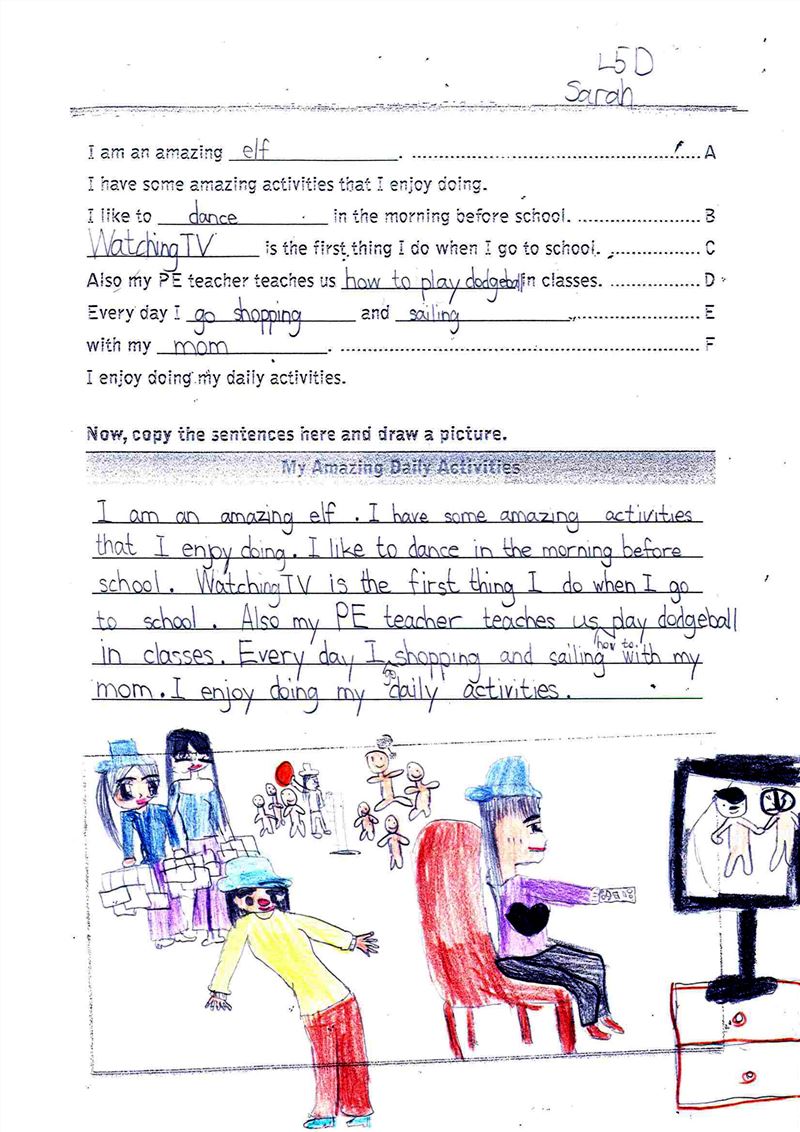 L5D
Sarah
I am an amazing elf. A
I have some amazing activities that I enjoy doing.
I like to dance in the morning before school. B
Watching TV is the first thing I do when I go to school. C
Also my PE teacher teaches us how to play dodgeball in classes. D
Every day I go shopping and sailing E
with my mom. F
I enjoy doing my daily activities.
Now, copy the sentences here and draw a picture.
My Amazing Daily Activities
I am an amazing elf. I have some amazing activities
that I enjoy doing. I like to dance in the morning before
school. Watching TV is the first thing I do when I go
to school. Also my PE teacher teaches us how to play dodgeball
in classes. Every day I go shopping and sailing with my
mom. I enjoy doing my daily activities.